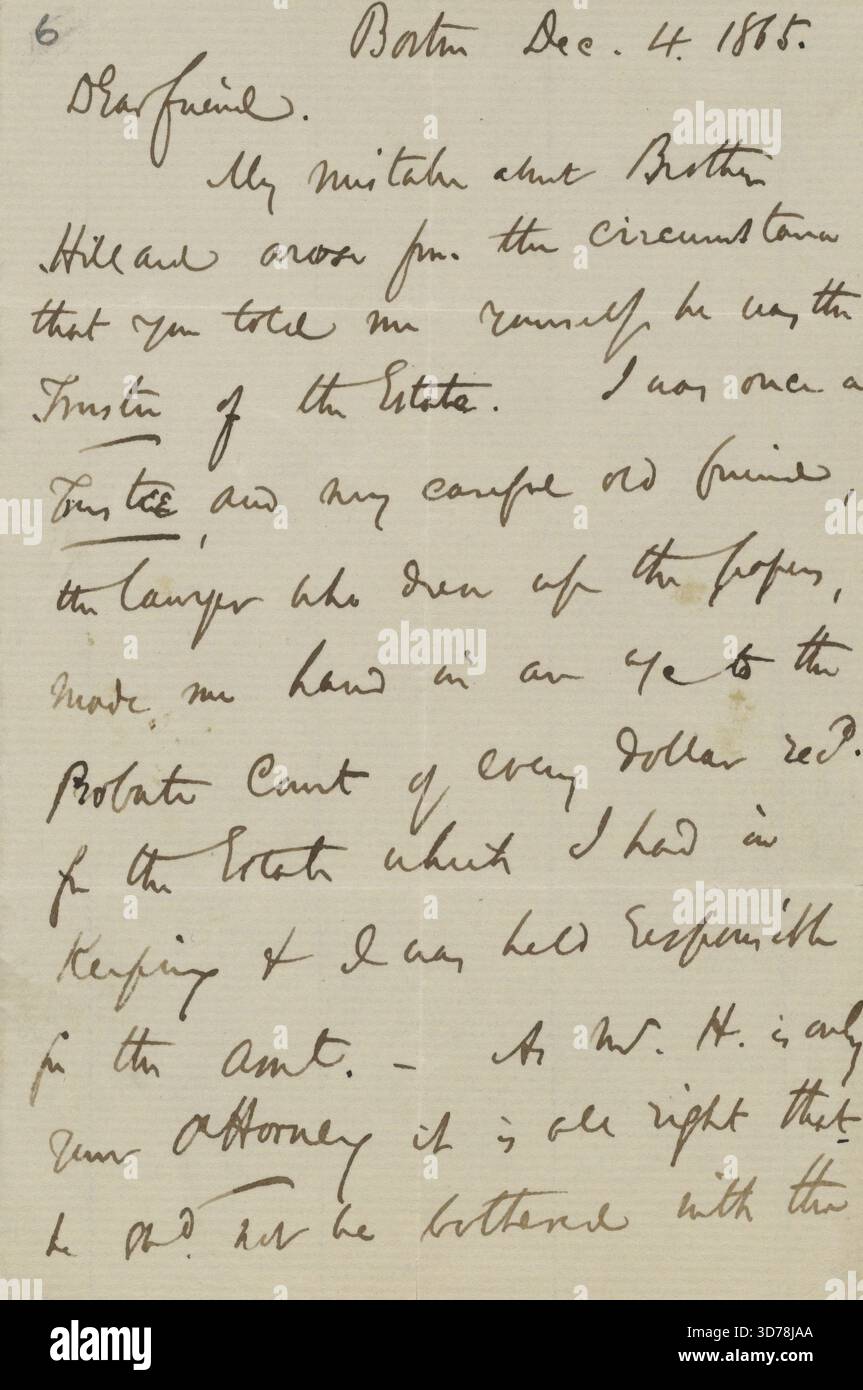 6
Boston Dec. 4. 1865.
Dear friend.
My mistake about Brother
Hillard arose from the circumstance
that you told me yourself he was the
Trustee of the Estate. I was once a
Trustee, and my careful old friend,
the lawyer who drew up the papers,
made me hand in an a/c to the
Probate Court of every dollar recd.
for the Estate which I had in
keeping & I was held responsible
for the amt. - As Mr. H. is only
your attorney it is all right that
he shd. not be bothered with the
alamy
Image ID: 3D78JAA
www.alamy.com